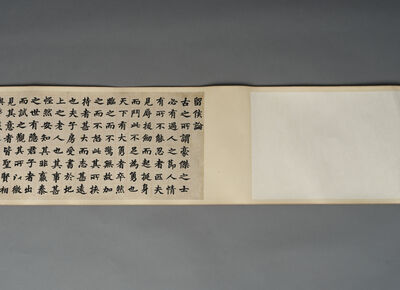 留侯論
古之所謂豪傑之士
必有過人之節人情
有所不能忍者匹夫
見辱拔劍而起挺身
而鬥此不足為勇也
天下有大勇者卒然
臨之而不驚無故加
之而不怒此其所挾
持者甚大而志甚遠
也夫子房受書於圯
上之老人也其事甚
怪然安知其非嬴秦
之世有隱君子者出
而試之觀其所以微
見其意者皆聖賢相